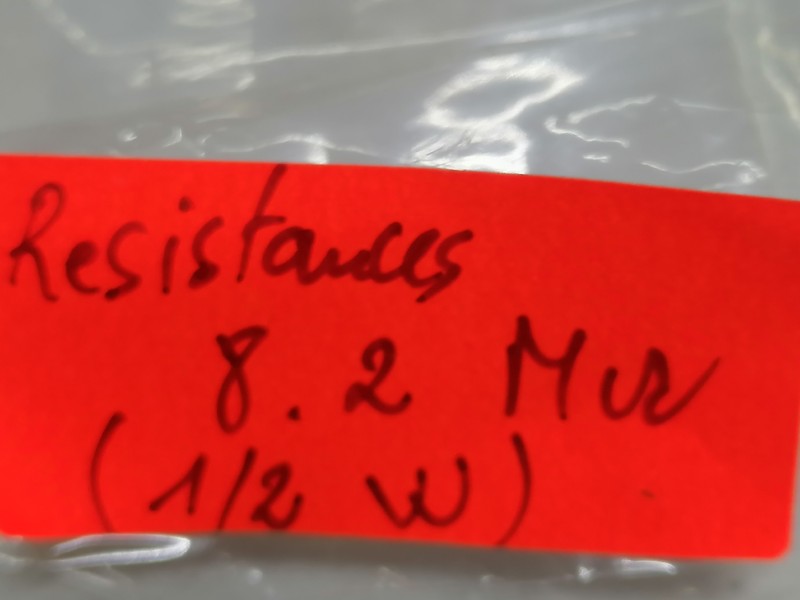 Resistances
8.2 MΩ
(1/2 W)